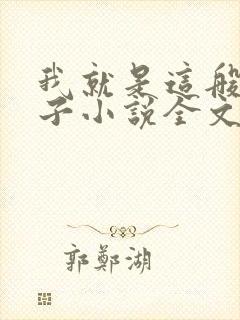 我就是這般
子小說全文
郭鄭湖